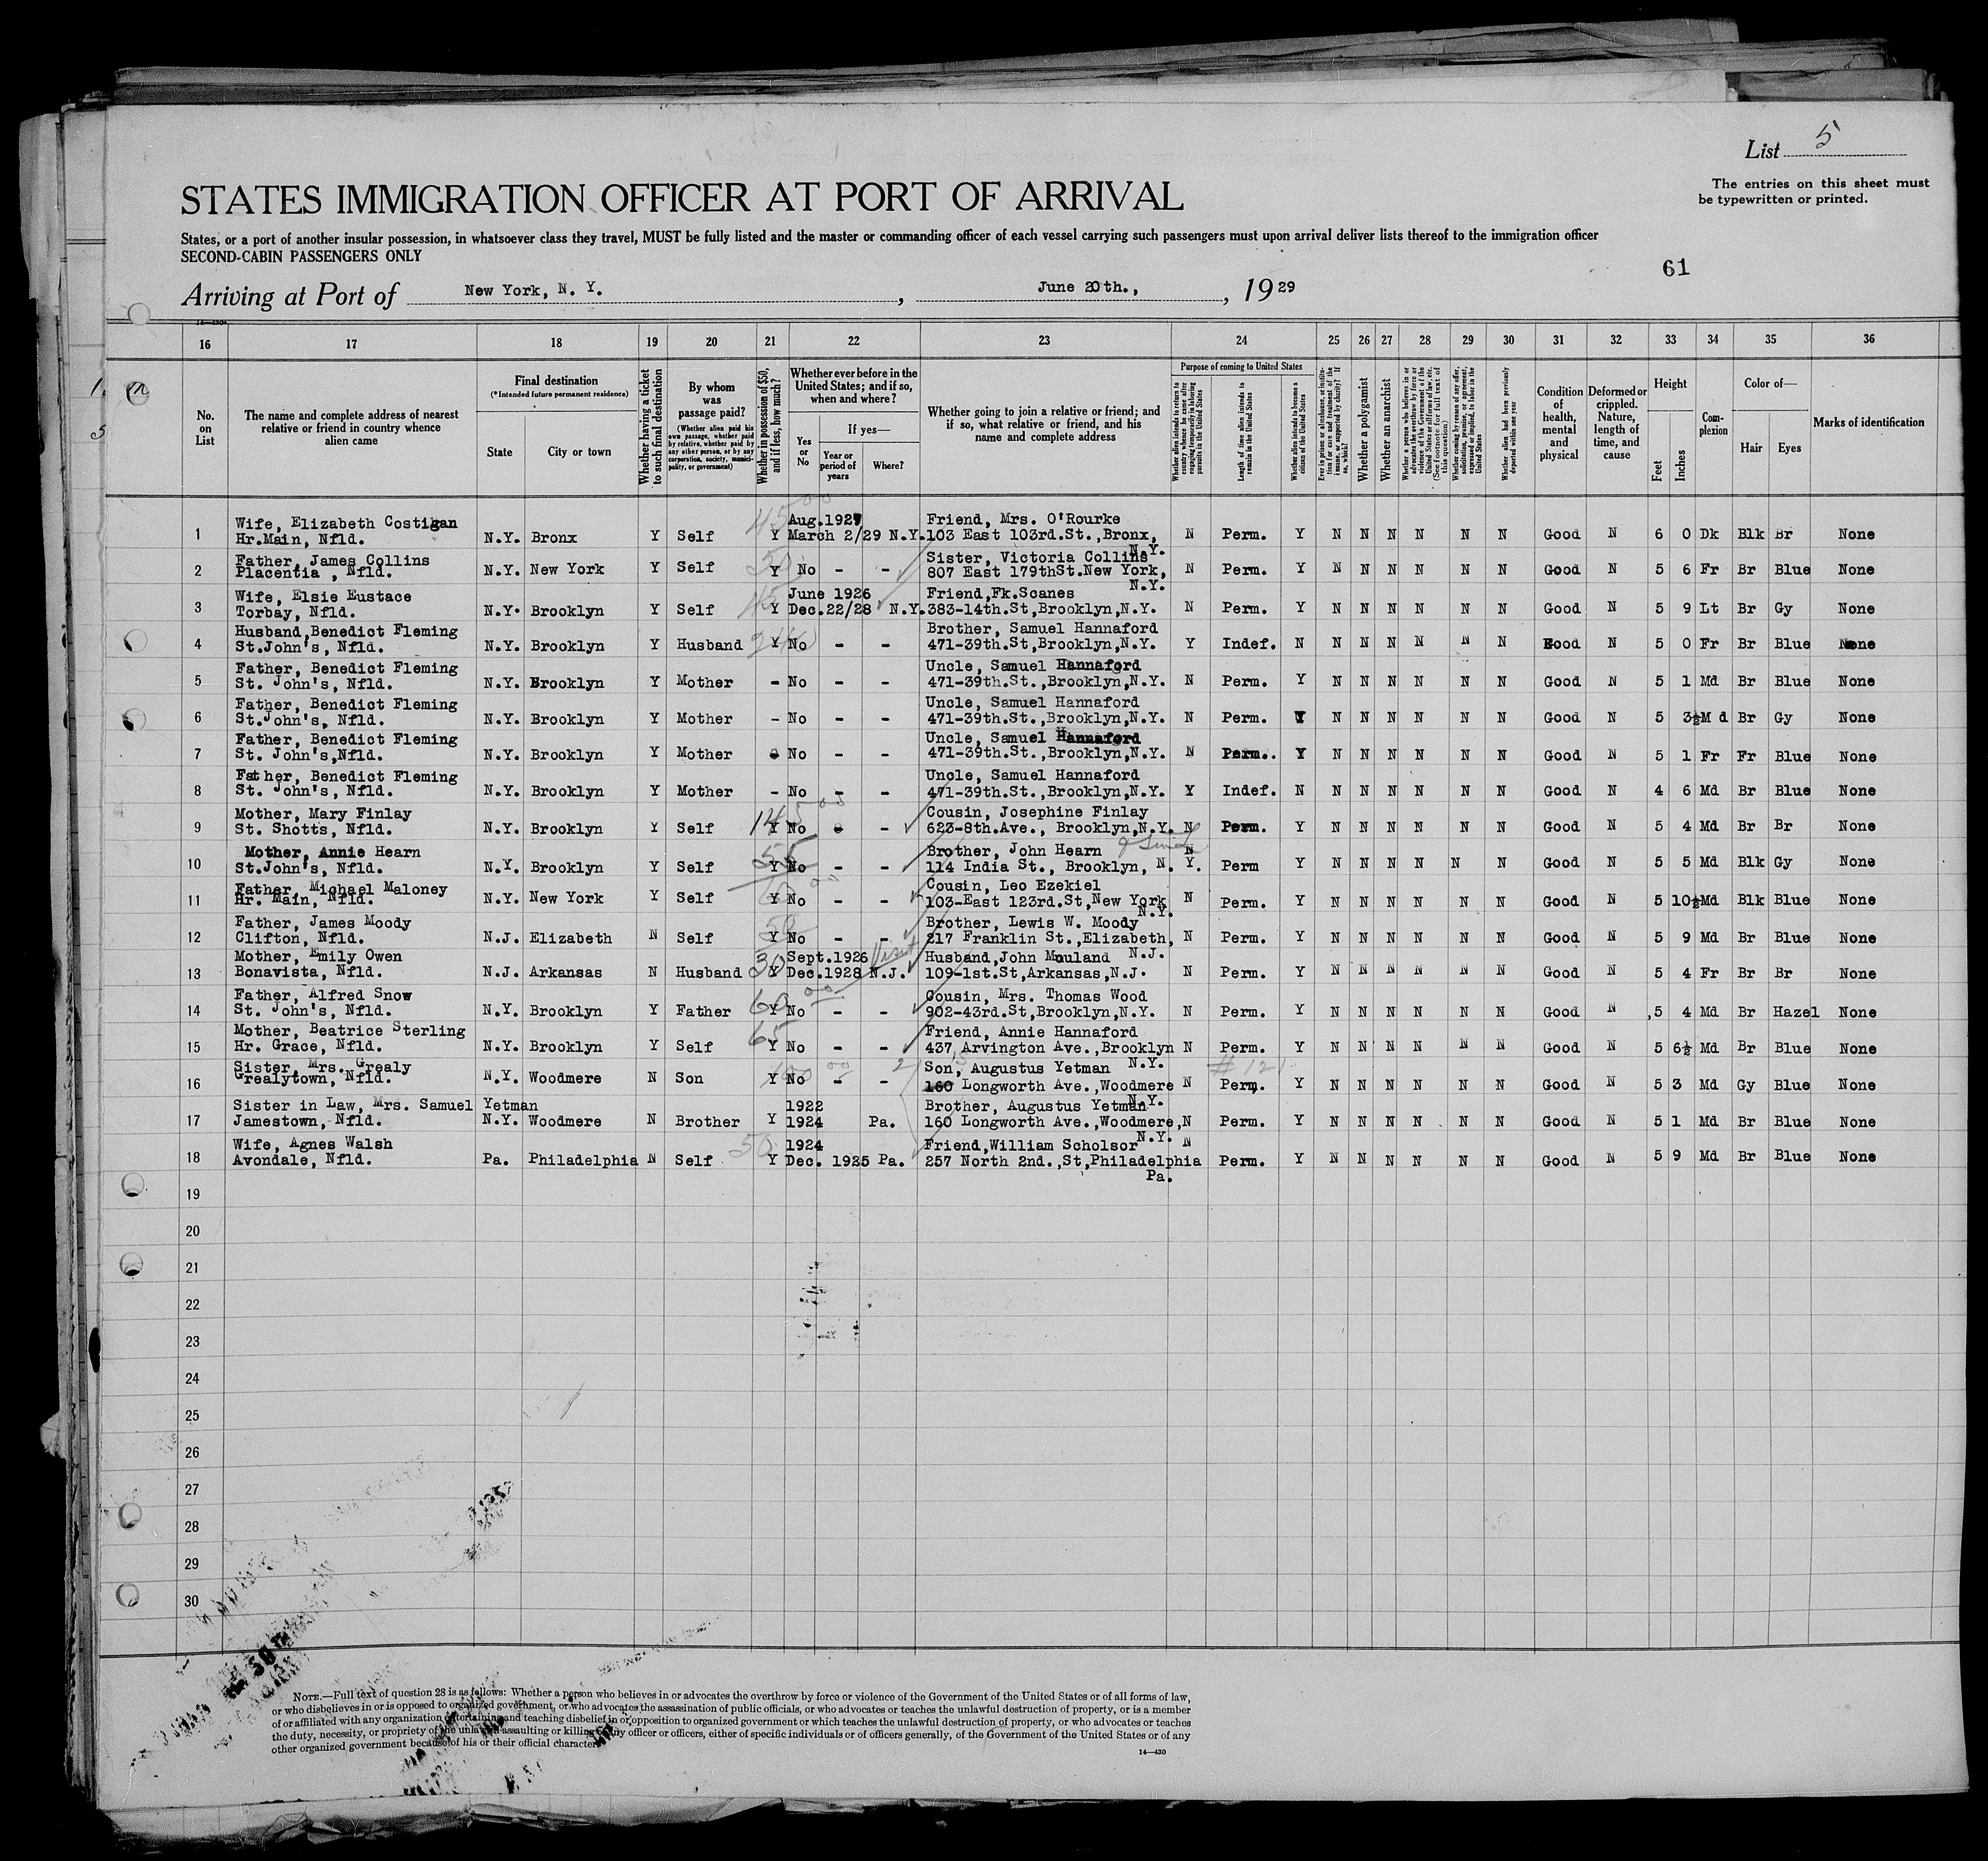 List 5
The entries on this sheet must
be typewritten or printed.
STATES IMMIGRATION OFFICER AT PORT OF ARRIVAL
States, or a port of another insular possession, in whatsoever class they travel, MUST be fully listed and the master or commanding officer of each vessel carrying such passengers must upon arrival deliver lists thereof to the immigration officer
SECOND-CABIN PASSENGERS ONLY
61
Arriving at Port of New York, N. Y. , June 20th., , 1929
16 17 18 19 20 21 22 23 24 25 26 27 28 29 30 31 32 33 34 35 36
No. on List
The name and complete address of nearest relative or friend in country whence alien came
Final destination
(*Intended future permanent residence)
State
City or town
Whether having a ticket to such final destination
By whom was passage paid?
(Whether alien paid his own passage, whether paid by relative, whether paid by any other person, or by any corporation, society, municipality, or government)
Whether in possession of $50, and if less, how much?
Whether ever before in the United States; and if so, when and where?
Yes or No
If yes—
Year or period of years
Where?
Whether going to join a relative or friend; and if so, what relative or friend, and his name and complete address
Purpose of coming to United States
Whether alien intends to return to country whence he came after engaging temporarily in laboring pursuits in the United States
Length of time alien intends to remain in the United States
Whether alien intends to become a citizen of the United States
Whether a polygamist
Whether an anarchist
Whether alien had been previously deported within one year
Condition of health, mental and physical
Deformed or crippled. Nature, length of time, and cause
Height
Feet
Inches
Complexion
Color of—
Hair
Eyes
Marks of identification
Wife, Elizabeth Costigan Aug.1927 Friend, Mrs. O'Rourke
1 Hr.Main, Nfld. N.Y. Bronx Y Self Y March 2/29 N.Y. 103 East 103rd.St.,Bronx, N Perm. Y N N N N N N Good N 6 0 Dk Blk Br None
N.Y.
Father, James Collins Sister, Victoria Collins
2 Placentia , Nfld. N.Y. New York Y Self Y No - - 807 East 179thSt.New York, N Perm. Y N N N N N N Good N 5 6 Fr Br Blue None
N.Y.
Wife, Elsie Eustace June 1926 Friend,Fk.Scanes
3 Torbay, Nfld. N.Y. Brooklyn Y Self Y Dec.22/28 N.Y. 383-14th.St,Brooklyn,N.Y. N Perm. Y N N N N N N Good N 5 9 Lt Br Gy None
Husband,Benedict Fleming Brother, Samuel Hannaford
4 St.John's, Nfld. N.Y. Brooklyn Y Husband Y No - - 471-39th.St,Brooklyn,N.Y. Y Indef. N N N N N N N Good N 5 0 Fr Br Blue None
Father, Benedict Fleming Uncle, Samuel Hannaford
5 St. John's, Nfld. N.Y. Brooklyn Y Mother - No - - 471-39th.St.,Brooklyn,N.Y. N Perm. Y N N N N N N Good N 5 1 Md Br Blue None
Father, Benedict Fleming Uncle, Samuel Hannaford
6 St.John's, Nfld. N.Y. Brooklyn Y Mother - No - - 471-39th.St.,Brooklyn,N.Y. N Perm. Y N N N N N N Good N 5 3½ M d Br Gy None
Father, Benedict Fleming Uncle, Samuel Hannaford
7 St. John's,Nfld. N.Y. Brooklyn Y Mother No - - 471-39th.St.,Brooklyn,N.Y. N Perm.. Y N N N N N N Good N 5 1 Fr Fr Blue None
Father, Benedict Fleming Uncle, Samuel Hannaford
8 St. John's, Nfld. N.Y. Brooklyn Y Mother - No - - 471-39th.St.,Brooklyn,N.Y. Y Indef. N N N N N N N Good N 4 6 Md Br Blue None
Mother, Mary Finlay Cousin, Josephine Finlay
9 St. Shotts, Nfld. N.Y. Brooklyn Y Self Y No - - 623-8th.Ave., Brooklyn,N.Y. N Perm. Y N N N N N N Good N 5 4 Md Br Br None
Mother, Annie Hearn 55 Brother, John Hearn N
10 St.John's, Nfld. N.Y. Brooklyn Y Self Y No - - 114 India St., Brooklyn, N. Y. Perm Y N N N N N N Good N 5 5 Md Blk Gy None
Father, Michael Maloney Cousin, Leo Ezekiel
11 Hr. Main, Nfld. N.Y. New York Y Self Y No - - 103-East 123rd.St,New York N Perm. Y N N N N N N Good N 5 10½ Md Blk Blue None
N.Y.
Father, James Moody 50 Brother, Lewis W. Moody
12 Clifton, Nfld. N.J. Elizabeth N Self Y No - - 217 Franklin St.,Elizabeth, N Perm. Y N N N N N N Good N 5 9 Md Br Blue None
N.J.
Mother, Emily Owen 30 Sept.1926 Visit Husband,John Mouland
13 Bonavista, Nfld. N.J. Arkansas N Husband Y Dec.1928 N.J. 109-1st.St,Arkansas,N.J. N Perm. Y N N N N N N Good N 5 4 Fr Br Br None
Father, Alfred Snow 60 00 Cousin, Mrs. Thomas Wood
14 St. John's, Nfld. N.Y. Brooklyn Y Father Y No - - 902-43rd.St,Brooklyn,N.Y. N Perm. Y N N N N N N Good N 5 4 Md Br Hazel None
Mother, Beatrice Sterling 65 Friend, Annie Hannaford
15 Hr. Grace, Nfld. N.Y. Brooklyn Y Self Y No - - 437 Arvington Ave.,Brooklyn N Perm. Y N N N N N N Good N 5 6½ Md Br Blue None
N.Y.
Sister, Mrs. Grealy 100 00 Son, Augustus Yetman # 121
16 Grealytown, Nfld. N.Y. Woodmere N Son Y No - - 160 Longworth Ave.,Woodmere N Perm. Y N N N N N N Good N 5 3 Md Gy Blue None
N.Y.
Sister in Law, Mrs. Samuel Yetman 1922 Brother, Augustus Yetman
17 Jamestown, Nfld. N.Y. Woodmere N Brother Y 1924 Pa. 160 Longworth Ave.,Woodmere, N Perm. Y N N N N N N Good N 5 1 Md Br Blue None
N.Y.
Wife, Agnes Walsh 50 1924 Friend,William Scholsor N
18 Avondale, Nfld. Pa. Philadelphia N Self Y Dec. 1925 Pa. 257 North 2nd.,St,Philadelphia Perm. Y N N N N N N Good N 5 9 Md Br Blue None
Pa.
19
20
21
22
23
24
25
26
27
28
29
30
NOTE.—Full text of question 28 is as follows: Whether a person who believes in or advocates the overthrow by force or violence of the Government of the United States or of all forms of law,
or who disbelieves in or is opposed to organized government, or who advocates the assassination of public officials, or who advocates or teaches the unlawful destruction of property, or is a member
of or affiliated with any organization entertaining and teaching disbelief in or opposition to organized government or which teaches the unlawful destruction of property, or who advocates or teaches
the duty, necessity, or propriety of the unlawful assaulting or killing of any officer or officers, either of specific individuals or of officers generally, of the Government of the United States or of any
other organized government because of his or their official character.
14—430